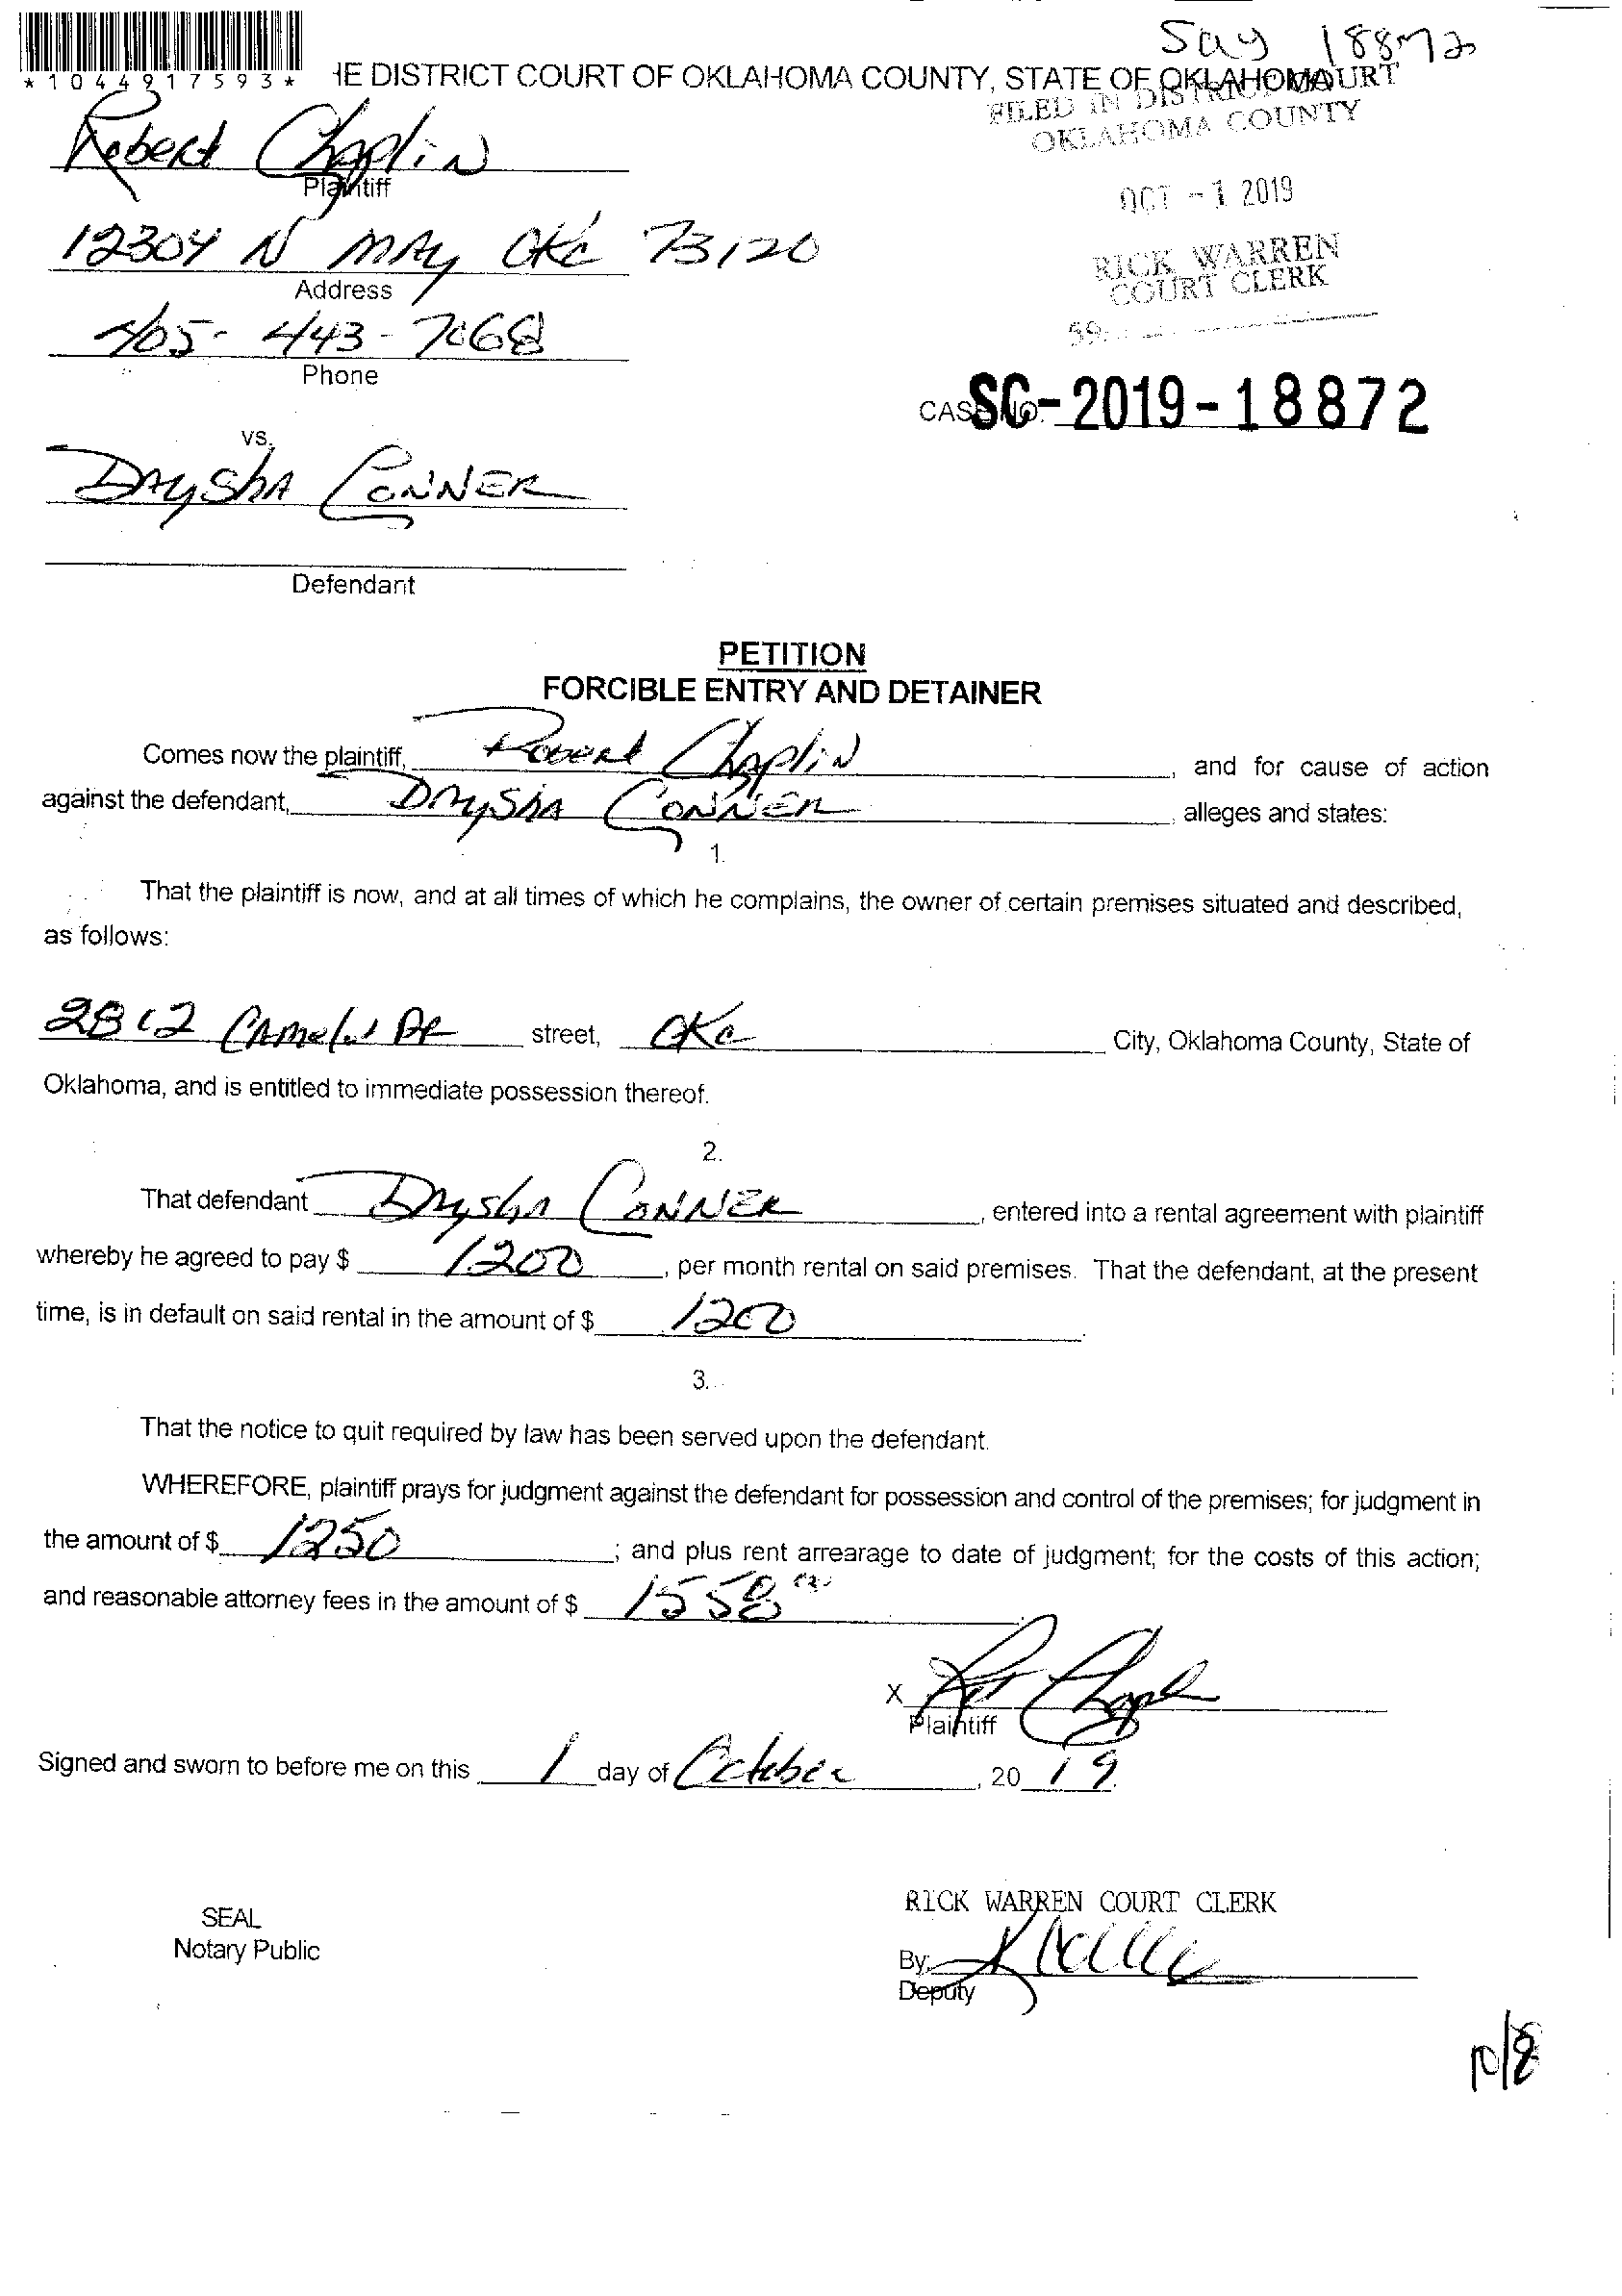 Say 18872
*1044917593* HE DISTRICT COURT OF OKLAHOMA COUNTY, STATE OF OKLAHOMA
FILED IN DISTRICT COURT
OKLAHOMA COUNTY
Robert Chaplin
Plaintiff
OCT -1 2019
12304 N MAy OKC 73120
Address
RICK WARREN
COURT CLERK
405-443-7068
59
Phone
CASE NO. SC-2019-18872
vs.
DAySha CONNER
Defendant
PETITION
FORCIBLE ENTRY AND DETAINER
Comes now the plaintiff, Robert Chaplin, and for cause of action
against the defendant, DAySha CONNER, alleges and states:
1.
That the plaintiff is now, and at all times of which he complains, the owner of certain premises situated and described,
as follows:
2812 Camelot DR street, OKC City, Oklahoma County, State of
Oklahoma, and is entitled to immediate possession thereof.
2.
That defendant DAySha CONNER, entered into a rental agreement with plaintiff
whereby he agreed to pay $ 1200, per month rental on said premises. That the defendant, at the present
time, is in default on said rental in the amount of $ 1200.
3.
That the notice to quit required by law has been served upon the defendant.
WHEREFORE, plaintiff prays for judgment against the defendant for possession and control of the premises; for judgment in
the amount of $ 1250; and plus rent arrearage to date of judgment; for the costs of this action;
and reasonable attorney fees in the amount of $ 1558
X
Plaintiff
Signed and sworn to before me on this 1 day of October, 20 19.
RICK WARREN COURT CLERK
SEAL
Notary Public
By:
Deputy
10/8